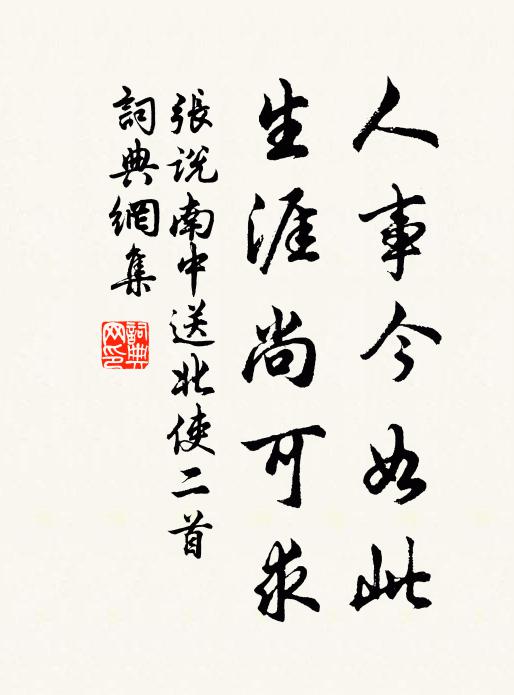 人事今如此
生涯尚可求
張說南中送北使二首
詞典網集
詞典
网印